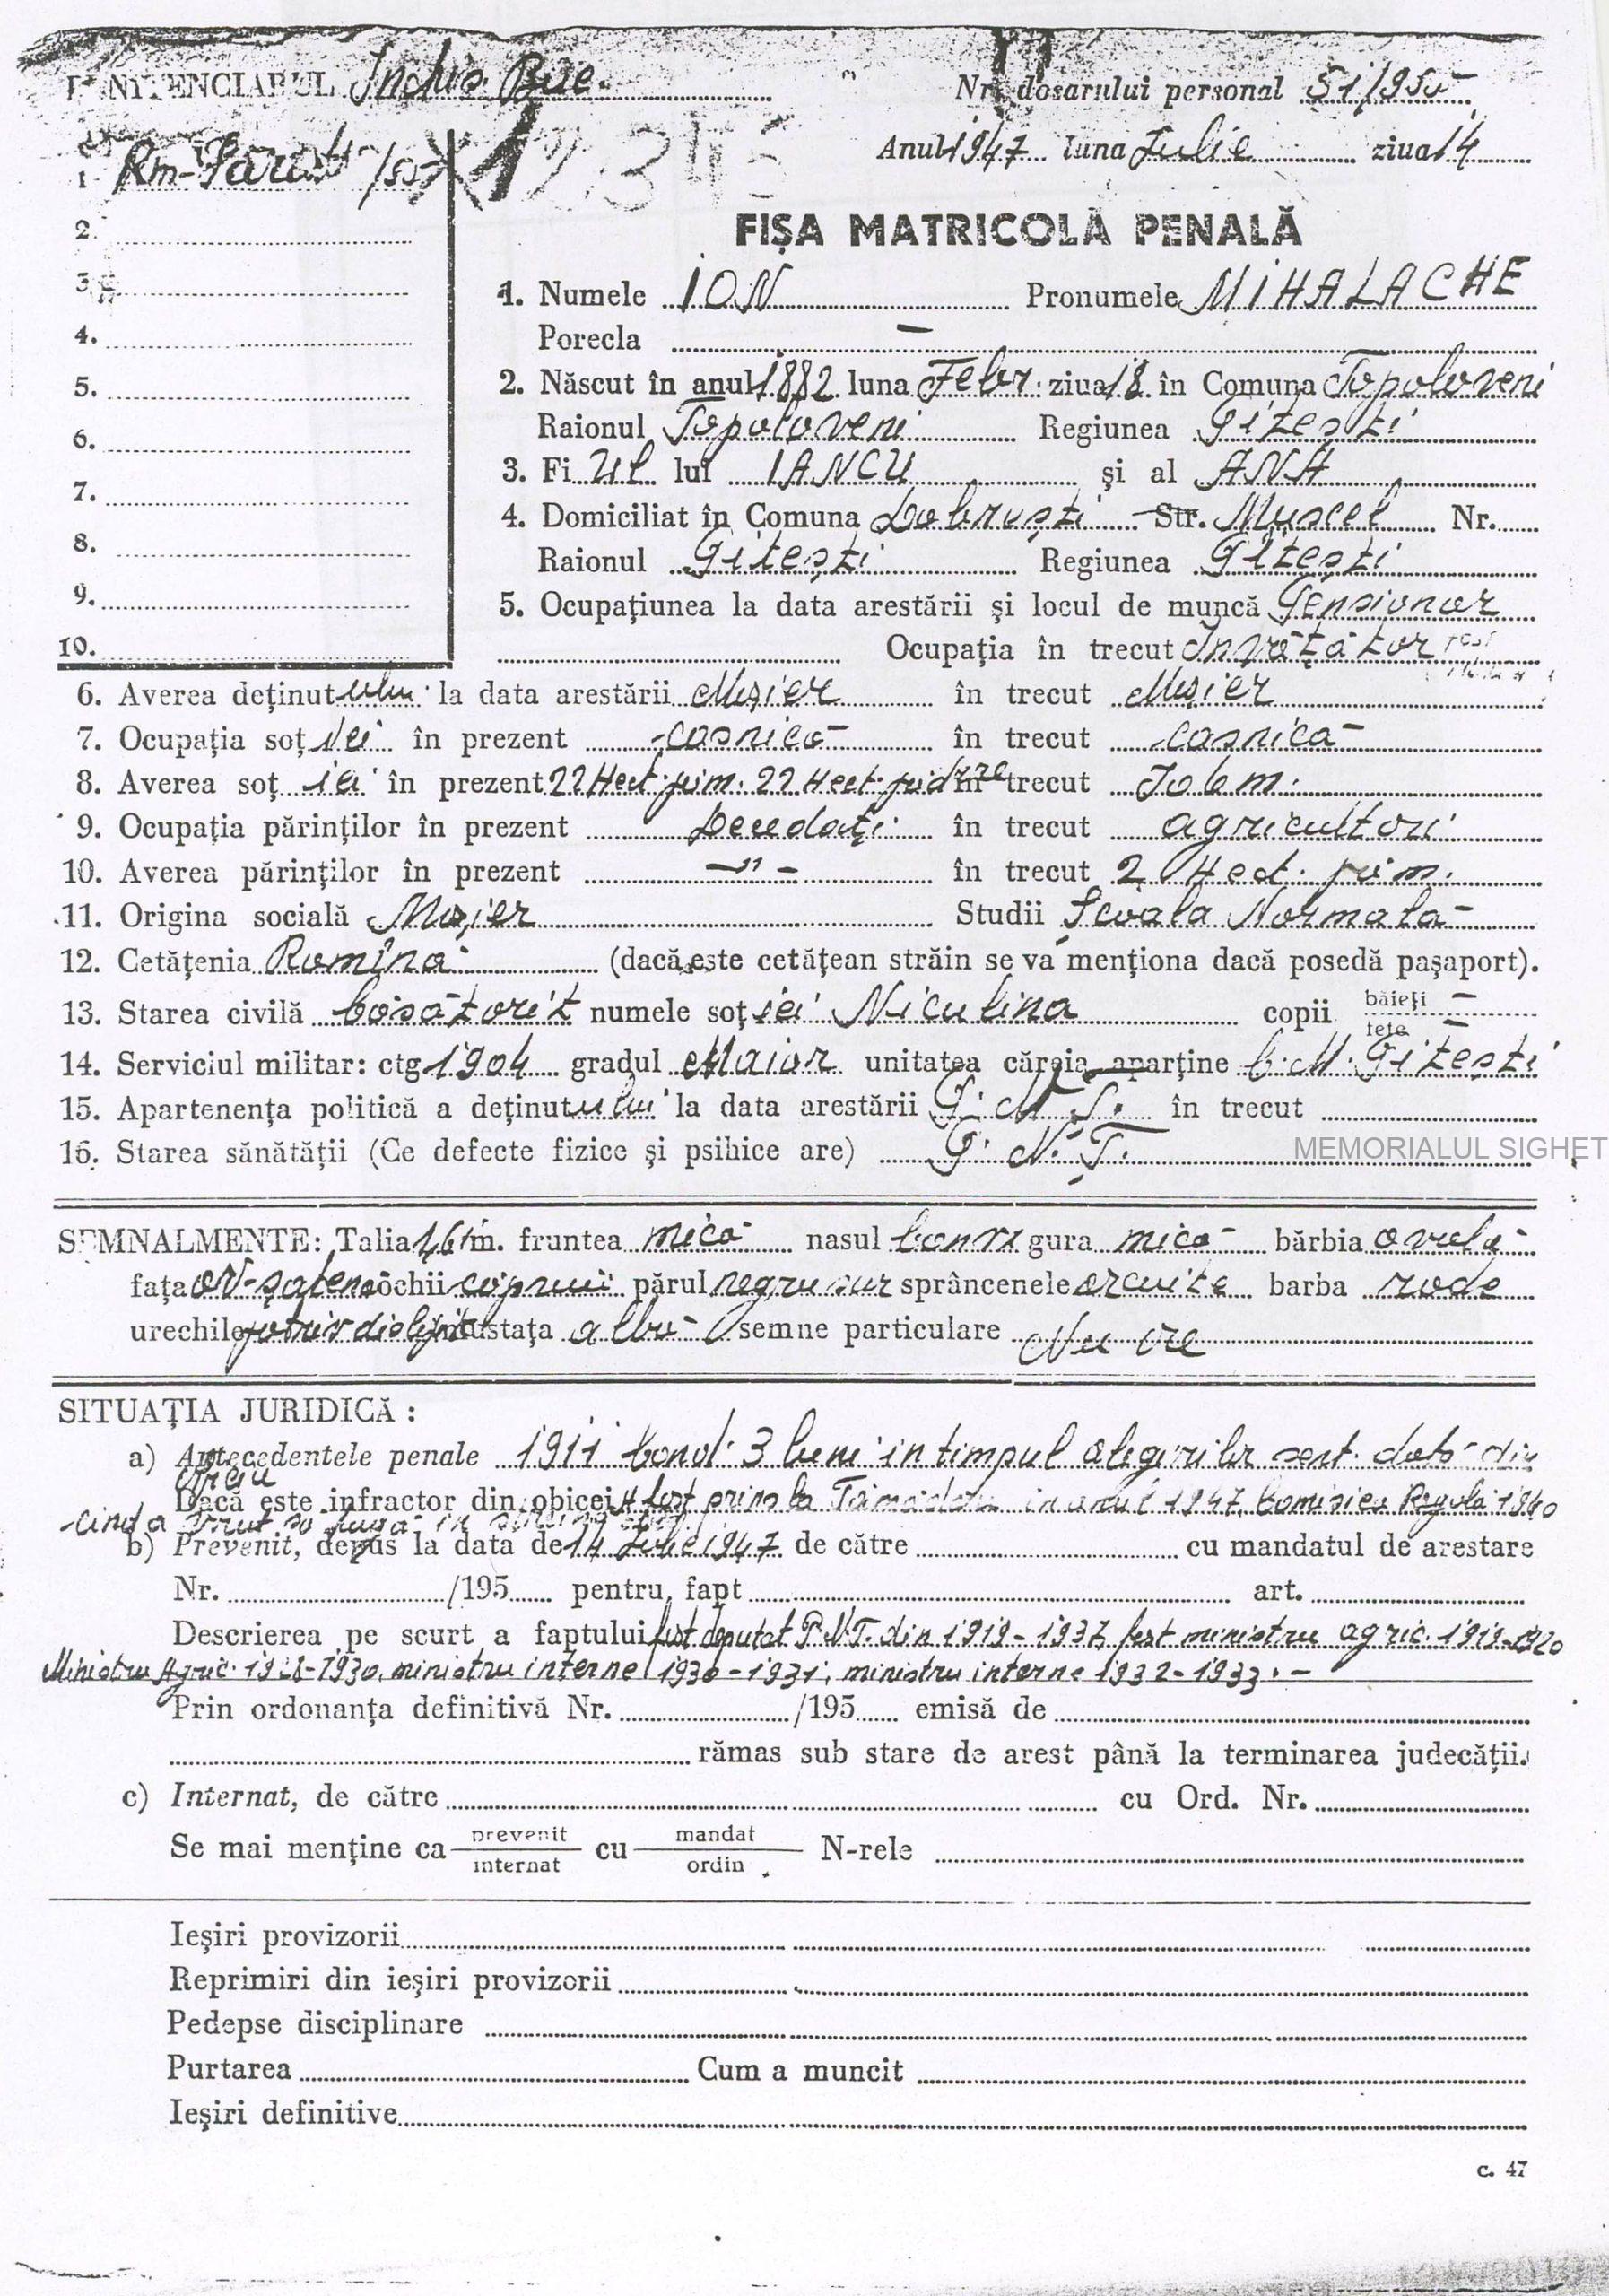 PENITENCIARUL Închis. Buc. Nr. dosarului personal 51/955
Anul 1947 luna Iulie ziua 14
1 Rm-Sarat
2.
3.
4.
5.
6.
7.
8.
9.
10.
FIȘA MATRICOLĂ PENALĂ
1. Numele ION Pronumele MIHALACHE
Porecla —
2. Născut în anul 1882 luna Febr. ziua 18 în Comuna Topoloveni
Raionul Topoloveni Regiunea Pitești
3. Fiul lui IANCU și al ANA
4. Domiciliat în Comuna Dobrești Str. Mușcel Nr.
Raionul Pitești Regiunea Pitești
5. Ocupațiunea la data arestării și locul de muncă Pensionar
Ocupația în trecut Învățător fost
6. Averea deținutului la data arestării Moșier în trecut Moșier
7. Ocupația soției în prezent casnică în trecut casnică
8. Averea soției în prezent 22 Hect. păm. 22 Hect. în trecut Idem.
9. Ocupația părinților în prezent Decedați în trecut agricultori
10. Averea părinților în prezent —"— în trecut 2 Hect. păm.
11. Origina socială Moșier Studii Școala Normală
12. Cetățenia Romînă (dacă este cetățean străin se va menționa dacă posedă pașaport).
13. Starea civilă Căsătorit numele soției Niculina copii băieți — fete —
14. Serviciul militar: ctg 1904 gradul Maior unitatea căreia aparține C.M. Pitești
15. Apartenența politică a deținutului la data arestării P.N.Ț. în trecut
16. Starea sănătății (Ce defecte fizice și psihice are) P.N.Ț.
MEMORIALUL SIGHET
SEMNALMENTE: Talia 1,61 m. fruntea mică nasul gura mică bărbia ovală
fața ochii căprui părul negru sur sprâncenele arcuite barba rade
urechile mustața albă semne particulare Nu are
SITUAȚIA JURIDICĂ:
a) Antecedentele penale 1911 Cond. 3 luni in timpul alegerilor sent. dată din
Dacă este infractor din obicei A fost prins la Tămădău in anul 1947, Comisiea Regală 1940
cind a vrut să fugă in
b) Prevenit, depus la data de 14 Iulie 1947 de către cu mandatul de arestare
Nr. /195 pentru fapt art.
Descrierea pe scurt a faptului fost deputat P.N.T. din 1919-1937, fost ministru agric. 1919-1920
Ministru Agric. 1928-1930, ministru interne 1930-1931, ministru interne 1932-1933.-
Prin ordonanța definitivă Nr. /195 emisă de
rămas sub stare de arest până la terminarea judecății.
c) Internat, de către cu Ord. Nr.
Se mai menține ca prevenit internat cu mandat ordin N-rele
Ieșiri provizorii
Reprimiri din ieșiri provizorii
Pedepse disciplinare
Purtarea Cum a muncit
Ieșiri definitive
c. 47